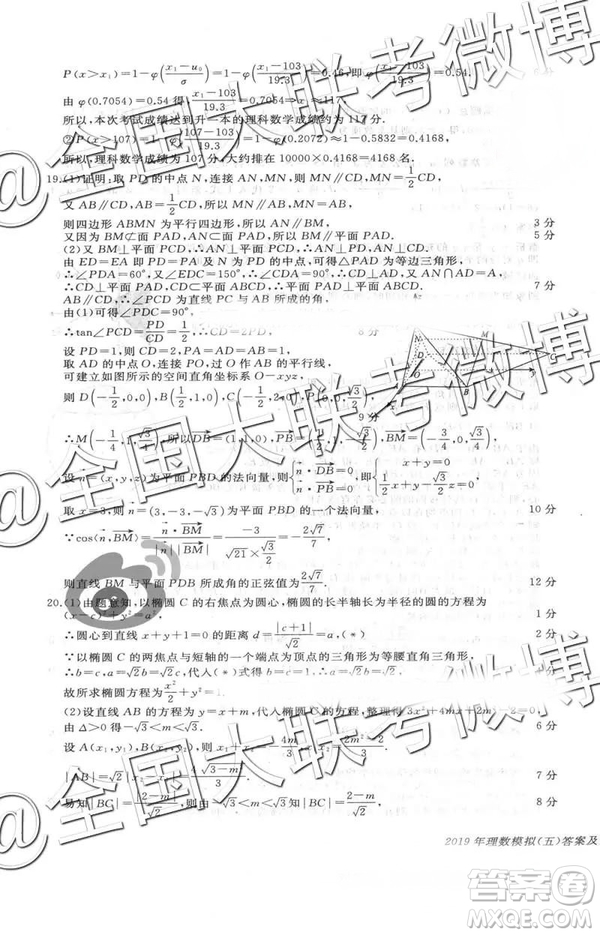 P(x>x₁)=1-φ((x₁-u₀)/σ)=1-φ((x₁-103)/19.3)=0.46,即φ((x₁-103)/19.3)=0.54.
由 φ(0.7054)=0.54 得 (x₁-103)/19.3=0.7054⇒x₁≈117.
所以,本次考试成绩达到升一本的理科数学成绩约为 117 分.
②P(x>107)=1-φ((107-103)/19.3)=1-φ(0.2072)=1-0.5832=0.4168,
所以,理科数学成绩为 107 分,大约排在 10000×0.4168=4168 名.
19.(1)证明:取 PD 的中点 N,连接 AN,MN,则 MN∥CD,MN=1/2 CD,
又 AB∥CD,AB=1/2 CD,所以 MN∥AB,MN=AB,
则四边形 ABMN 为平行四边形,所以 AN∥BM, 3 分
又因为 BM⊄平面 PAD,AN⊂平面 PAD,所以 BM∥平面 PAD. 5 分
(2)又 BM⊥平面 PCD,∴AN⊥平面 PCD,∴AN⊥PD,AN⊥CD.
由 ED=EA 即 PD=PA 及 N 为 PD 的中点,可得△PAD 为等边三角形,
∴∠PDA=60°,又∠EDC=150°,∴∠CDA=90°,∴CD⊥AD.
∴CD⊥平面 PAD,CD⊂平面 ABCD,∴平面 PAD⊥平面 ABCD. 7 分
AB∥CD,∴∠PCD 为直线 PC 与 AB 所成的角.
由(1)可得∠PDC=90°,
∴tan∠PCD=PD/CD=1/2,∴CD=2PD, 8 分
设 PD=1,则 CD=2,PA=AD=AB=1,
取 AD 的中点 O,连接 PO,过 O 作 AB 的平行线,
可建立如图所示的空间直角坐标系 O-xyz,
则 D(-1/2,0,0),B(1/2,1,0),C(-1/2,2,0),P(0,0,√3/2) 9 分
∴M(-1/4,1,√3/4),所以DB=(1,1,0),PB=(1/2,1,-√3/2),BM=(-3/4,0,√3/4),
设 n=(x,y,z)为平面 PBD 的法向量,则{n·DB=0 n·PB=0,即{x+y=0 1/2x+y-√3/2z=0
取 x=3,则 n=(3,-3,-√3)为平面 PBD 的一个法向量, 10 分
∵cos⟨n,BM⟩=n·BM/|n||BM|=-3/(√21×√3/2)=-2√7/7,
则直线 BM 与平面 PDB 所成角的正弦值为2√7/7. 12 分
20.(1)由题意知,以椭圆 C 的右焦点为圆心,椭圆的长半轴长为半径的圆的方程为
(x-c)²+y²=a², 1 分
∴圆心到直线 x+y+1=0 的距离 d=|c+1|/√2=a,(*)
∵以椭圆 C 的两焦点与短轴的一个端点为顶点的三角形为等腰直角三角形,
∴b=c,a=√2b=√2c,代入(*)式得 b=c=1,∴a=√2b=√2,
故所求椭圆方程为x²/2+y²=1.
(2)设直线 AB 的方程为 y=x+m,代入椭圆 C 的方程,整理得 3x²+4mx+2m²-2=0,
由 Δ>0 得-√3<m<√3, 6 分
|AB|=√2|x₁-x₂|= 7 分
易知|BC|=|2-m|/√2,则由-√3<m<√3知|BC|=(2-m)/√2, 8 分
2019 年理数模拟(五)答案及
@全国大联考微博
@全国大联考微博
@全国大联考微博
答案卷
MXQE.COM